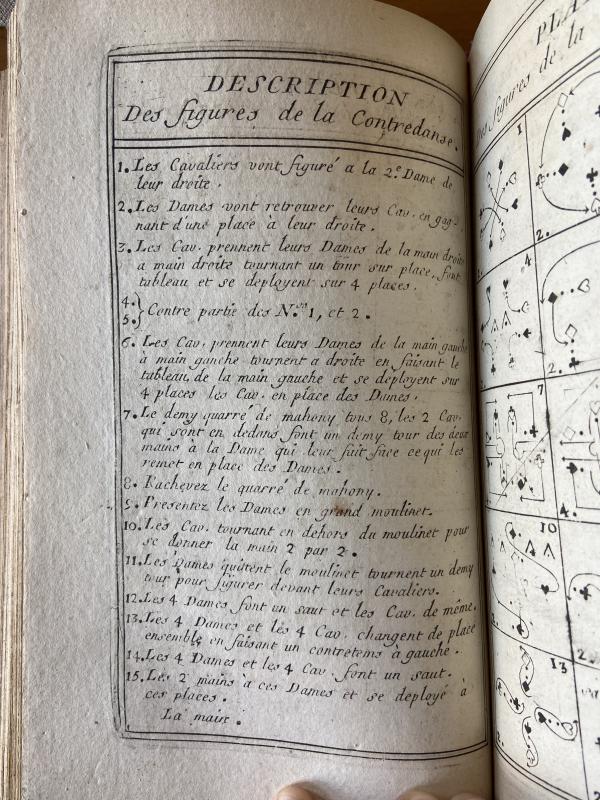 DESCRIPTION
Des figures de la Contredanse.
1. Les Cavaliers vont figuré a la 2.e Dame de
leur droite.
2. Les Dames vont retrouver leurs Cav. en gag-
nant d'une place à leur droite.
3. Les Cav. prennent leurs Dames de la main droite
a main droite tournant un tour sur place, font
tableau et se deployent sur 4 places.
4.
5. } Contre partie des N.os 1, et 2.
6. Les Cav. prennent leurs Dames de la main gauche
à main gauche tournent a droite en faisant le
tableau, de la main gauche et se déployent sur
4 places les Cav. en place des Dames.
7. Le demy quarré de mahony tous 8, les 2 Cav.
qui sont en dedans font un demy tour des deux
mains à la Dame qui leur fait face ce qui les
remet en place des Dames.
8. Rachevez le quarré de mahony.
9. Presentez les Dames en grand moulinet.
10. Les Cav. tournant en dehors du moulinet pour
se donner la main 2 par 2.
11. Les Dames quittent le moulinet tournent un demy
tour pour figurer devant leurs Cavaliers.
12. Les 4 Dames font un saut et les Cav. de même.
13. Les 4 Dames et les 4 Cav. changent de place
ensemble en faisant un contretems à gauche.
14. Les 4 Dames et les 4 Cav. font un saut.
15. Les 2 mains à ces Dames et se deployé à
ces places.
La main.
PLA
Des figures de la
1
2.
4
7
10
13